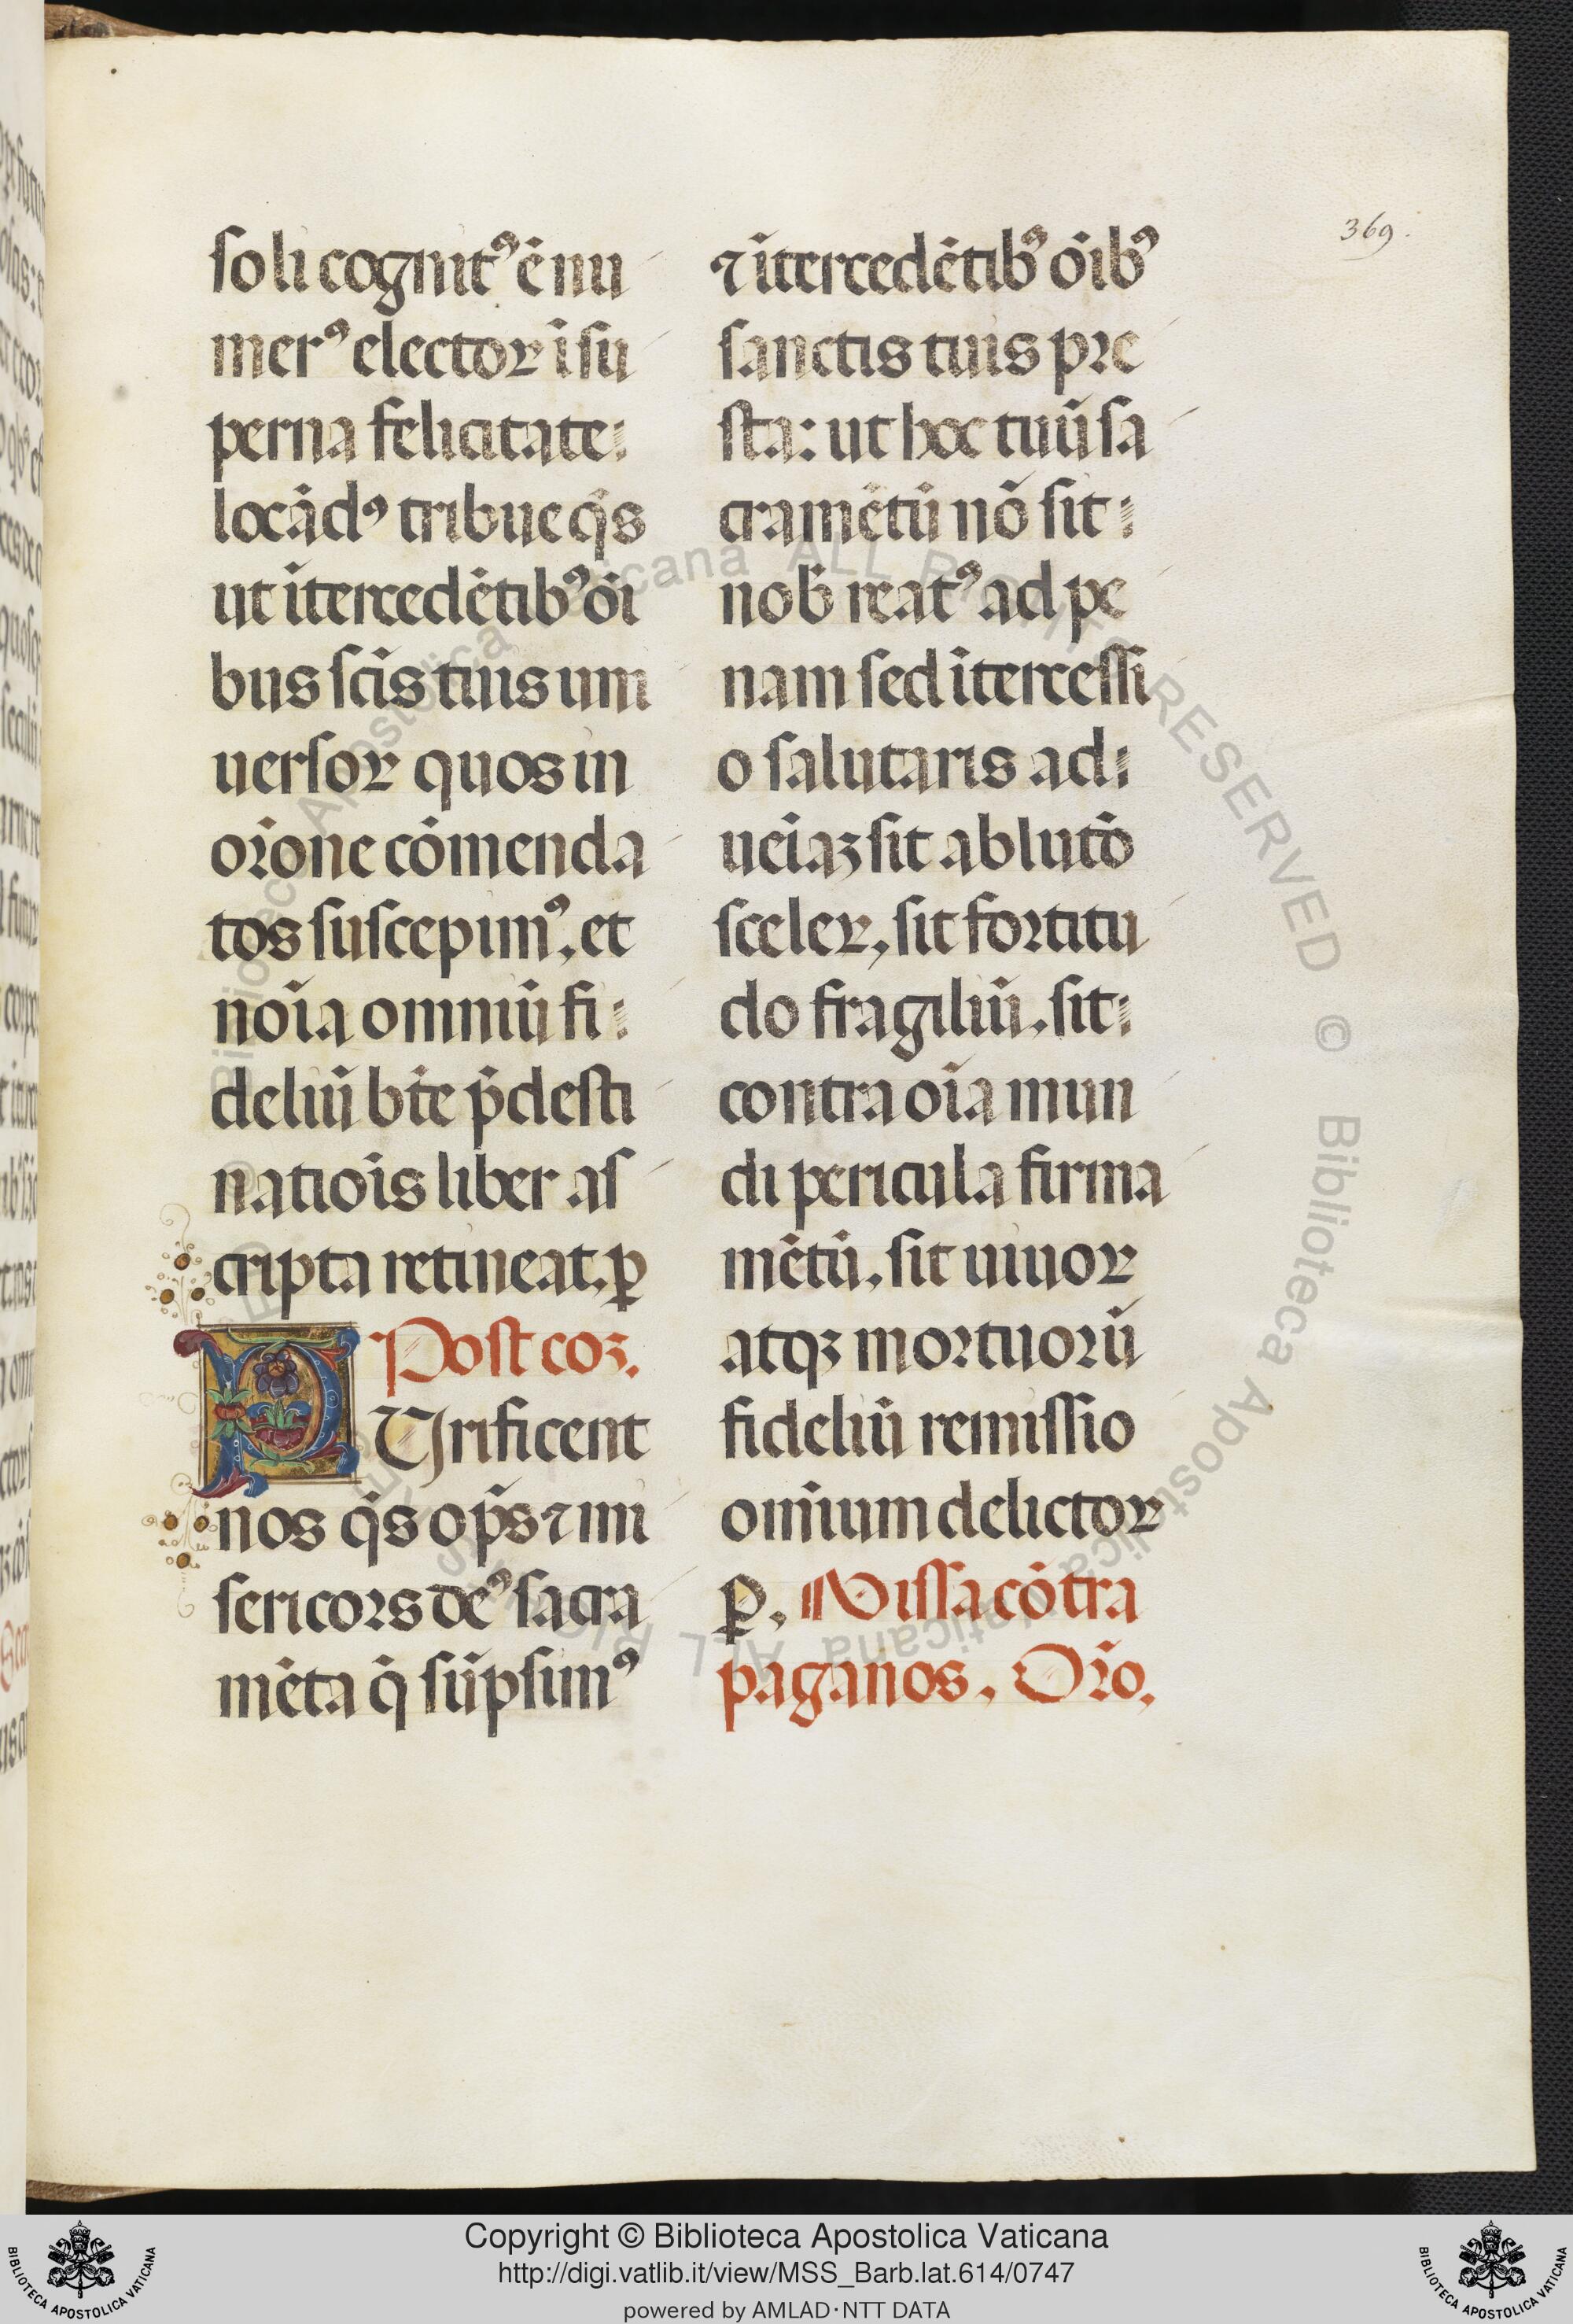 369.
soli cognitꝰ ē nu
merꝰ electoꝝ ī su
perna felicitate:
locādꝰ tribue q̄s
ut ītercedētibꝰ oī
bus scīs tuis uni
uersoꝝ quos in
orōne cōmenda
tos suscepimꝰ, et
noīa omniū fi:
deliū btē p̄desti
natiōis liber as
cripta retineat, ꝑ
Post coꝫ.
PUrificent
nos q̄s op̄s ⁊ mi
sericors deꝰ sacra
mēta q̄ sūpsimꝰ
⁊ ītercedētibꝰ oībꝰ
sanctis tuis pre
sta: ut hoc tuū sa
cramētū nō sit:
nob̄ reatꝰ ad pe
nam sed ītercessi
o salutaris ad:
ueīaꝫ sit ablutō
sceleꝝ, sit fortitu
do fragiliū, sit:
contra oīa mun
di pericula firma
mētū, sit uiuoꝝ
atqꝫ mortuorū
fideliū remissio
om̄ium delictoꝝ
ꝑ, Missa cōtra
paganos, Orō,
© Biblioteca Apostolica Vaticana ALL RIGHTS RESERVED
Copyright © Biblioteca Apostolica Vaticana
http://digi.vatlib.it/view/MSS_Barb.lat.614/0747
powered by AMLAD·NTT DATA
BIBLIOTECA APOSTOLICA VATICANA
BIBLIOTECA APOSTOLICA VATICANA